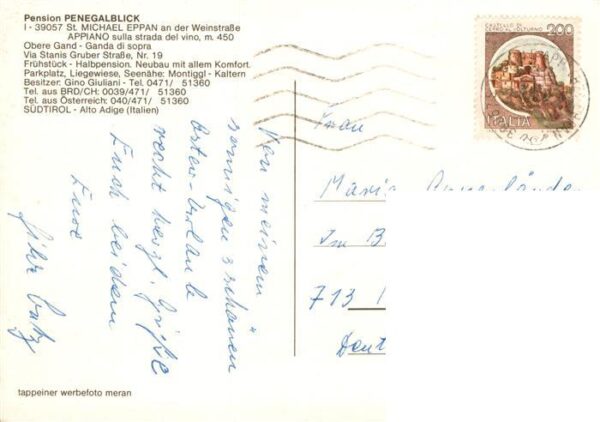 Pension PENEGALBLICK
I - 39057 St. MICHAEL EPPAN an der Weinstraße
APPIANO sulla strada del vino, m. 450
Obere Gand - Ganda di sopra
Via Stanis Gruber Straße, Nr. 19
Frühstück - Halbpension. Neubau mit allem Komfort.
Parkplatz, Liegewiese, Seenähe: Montiggl - Kaltern
Besitzer: Gino Giuliani - Tel. 0471/ 51360
Tel. aus BRD/CH: 0039/471/ 51360
Tel. aus Österreich: 040/471/ 51360
SÜDTIROL - Alto Adige (Italien)
Von meinem
sonnigen & schönen
Oster-Urlaub
recht herzl. Grüße
Euch beiden
Eure
CASTELLO DI
CERRO AL VOLTURNO
200
ITALIA
Frau
Maria
Im B
713
Deut
tappeiner werbefoto meran